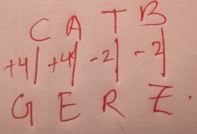 C A T B
+4| +4| -2| -2|
G E R Z.